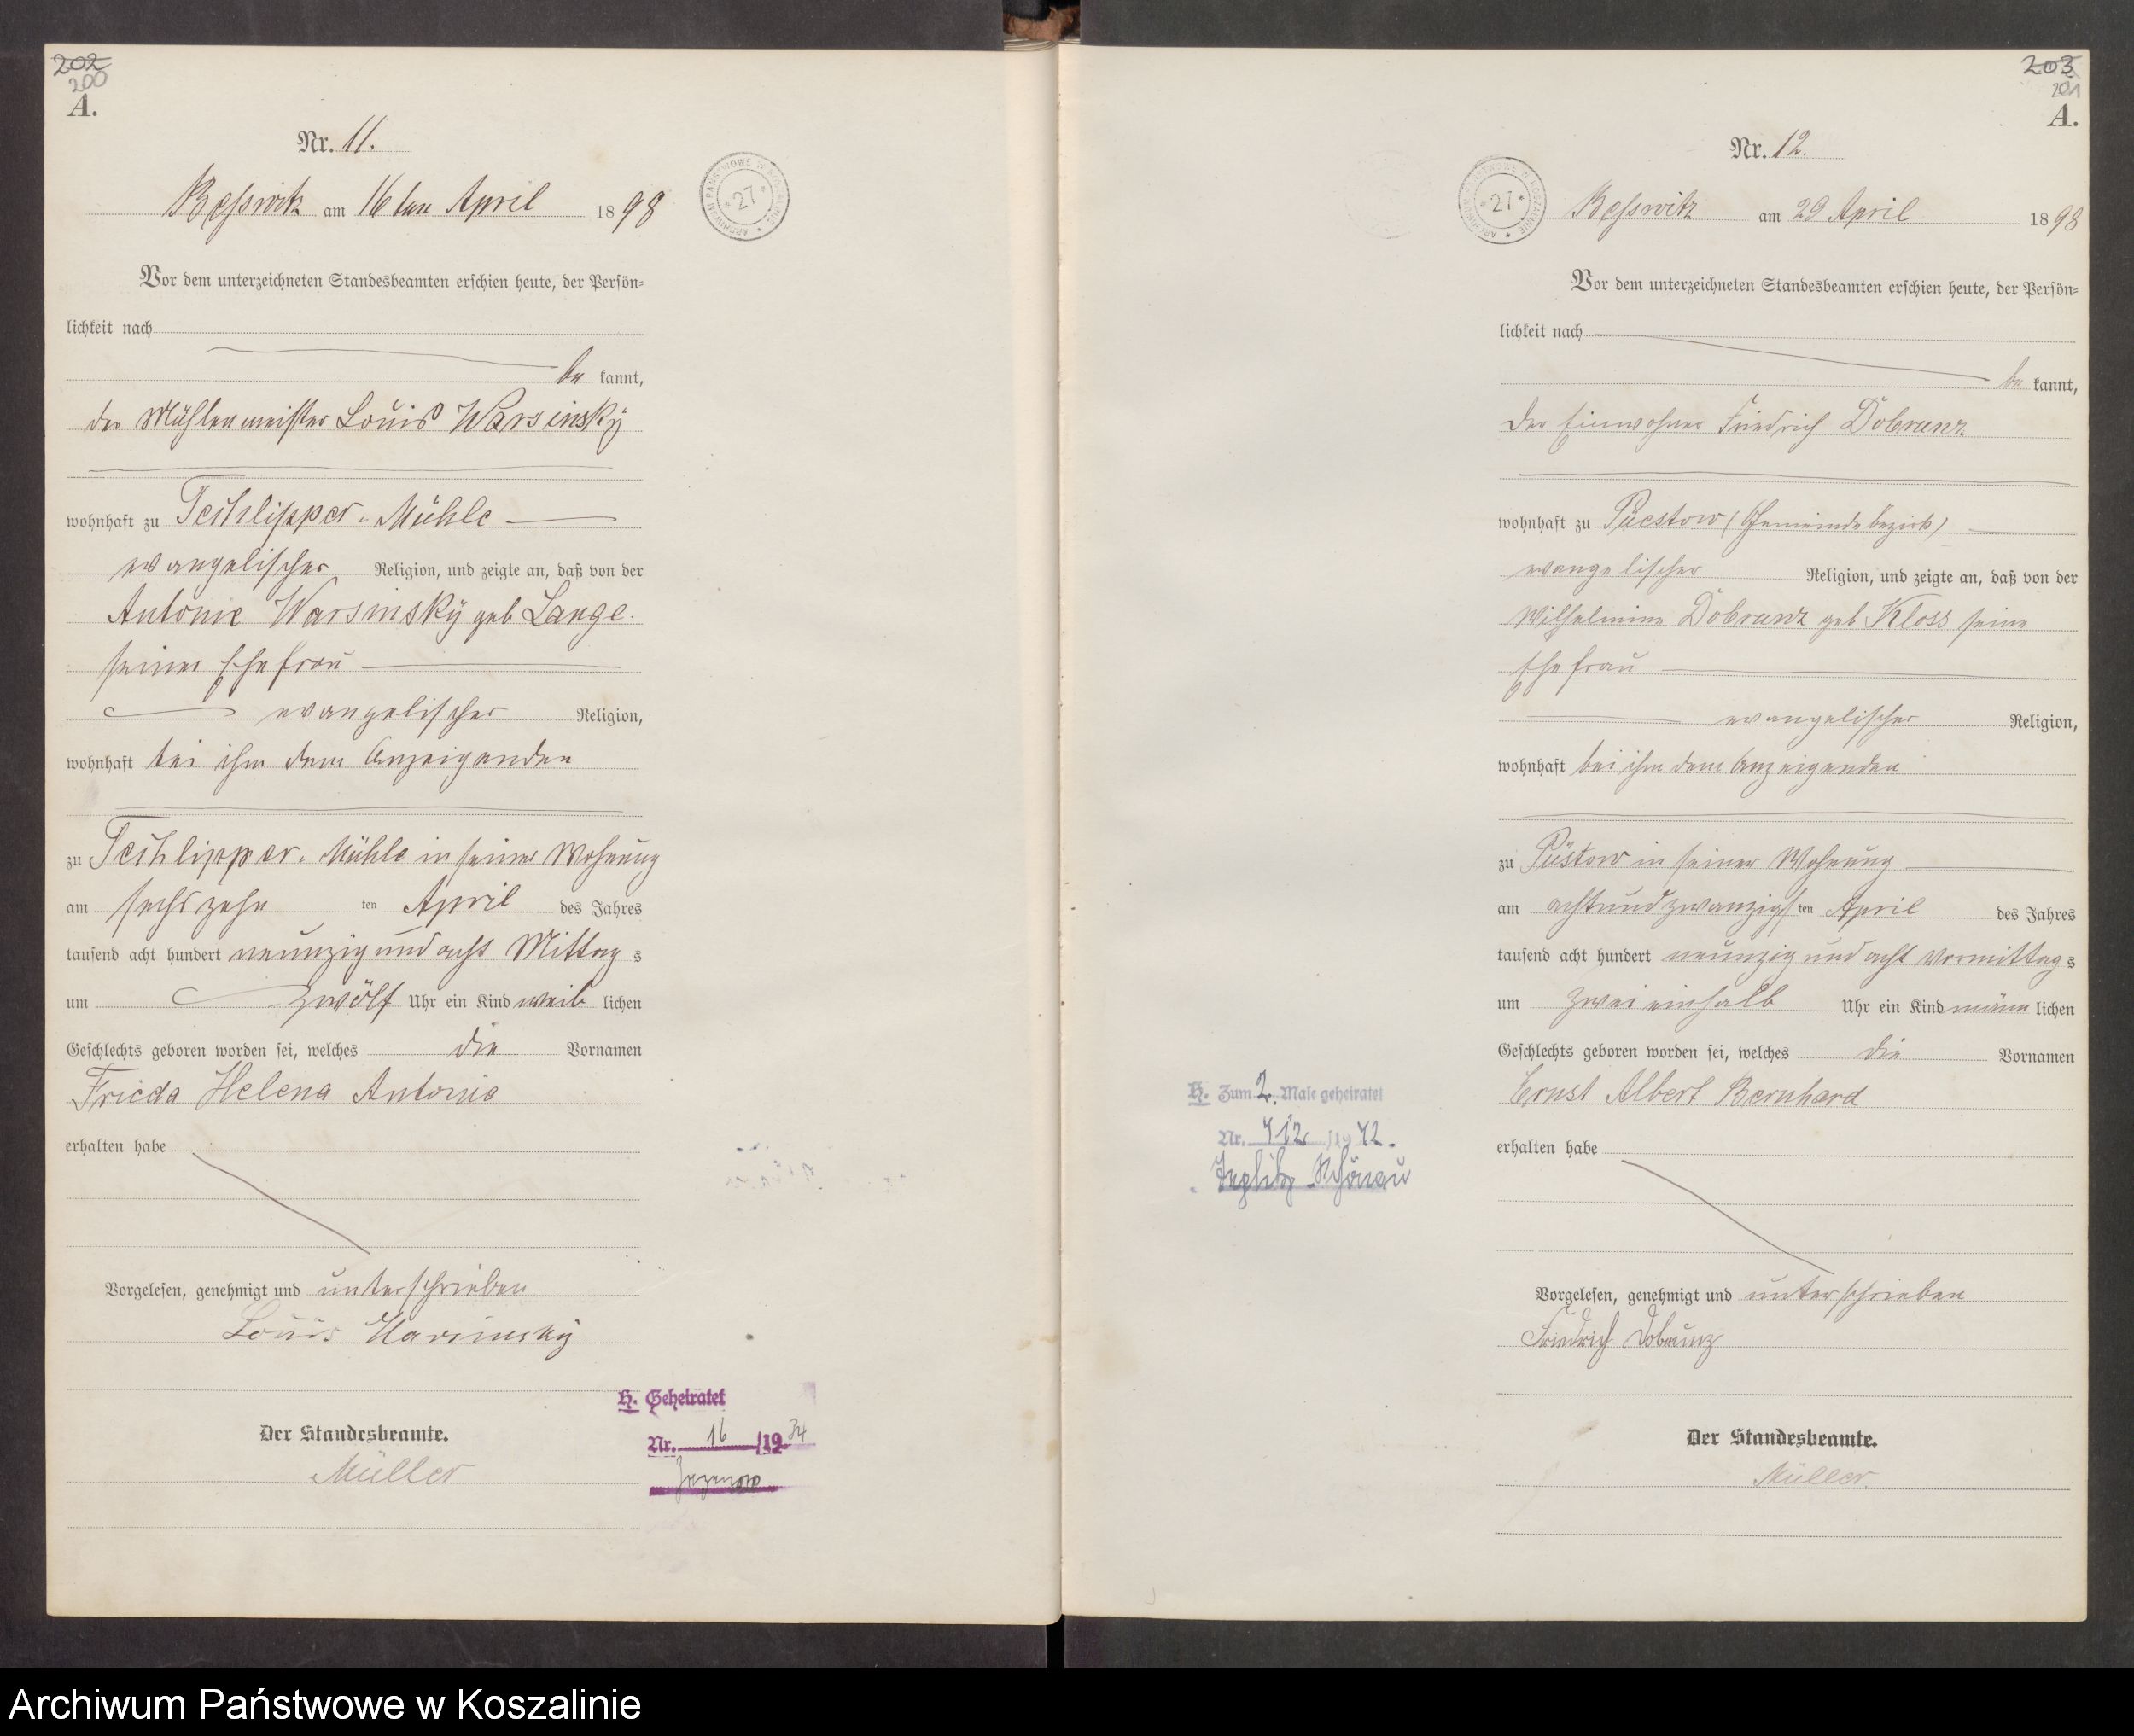 202
200
A.
Nr. 11.
Besswitz am 16ten April 1898
ARCHIWUM PAŃSTWOWE W KOSZALINIE * 27 *
Vor dem unterzeichneten Standesbeamten erschien heute, der Persön-
lichkeit nach
be kannt,
der Mühlenmeister Louis Warsinsky
wohnhaft zu Techlipper-Mühle
evangelischer Religion, und zeigte an, daß von der
Antonie Warsinsky geb Lange.
seiner Ehefrau
evangelischer Religion,
wohnhaft bei ihm dem Anzeigenden
zu Techlipper-Mühle in seiner Wohnung
am sechszehn ten April des Jahres
tausend acht hundert neunzig und acht Mittag s
um zwölf Uhr ein Kind weib lichen
Geschlechts geboren worden sei, welches die Vornamen
Frieda Helena Antonie
erhalten habe
Vorgelesen, genehmigt und unterschrieben
Louis Warsinsky
H. Geheiratet
Nr. 16 /1934
Der Standesbeamte.
Müller
203
201
A.
Nr. 12.
ARCHIWUM PAŃSTWOWE W KOSZALINIE * 27 *
Besswitz am 29 April 1898
Vor dem unterzeichneten Standesbeamten erschien heute, der Persön-
lichkeit nach
be kannt,
der Einwohner Friedrich Dobrunz
wohnhaft zu Puestow (Gemeindebezirk)
evangelischer Religion, und zeigte an, daß von der
Wilhelmine Dobrunz geb Kloss seine
Ehefrau
evangelischer Religion,
wohnhaft bei ihm dem Anzeigenden
zu Püstow in seiner Wohnung
am achtundzwanzigs ten April des Jahres
tausend acht hundert neunzig und acht Vormittag s
um zwei einhalb Uhr ein Kind männ lichen
Geschlechts geboren worden sei, welches die Vornamen
Ernst Albert Bernhard
erhalten habe
H. Zum 2. Male geheiratet
Nr. 412 /1942.
Vorgelesen, genehmigt und unterschrieben
Friedrich Dobrunz
Der Standesbeamte.
Müller.
Archiwum Państwowe w Koszalinie